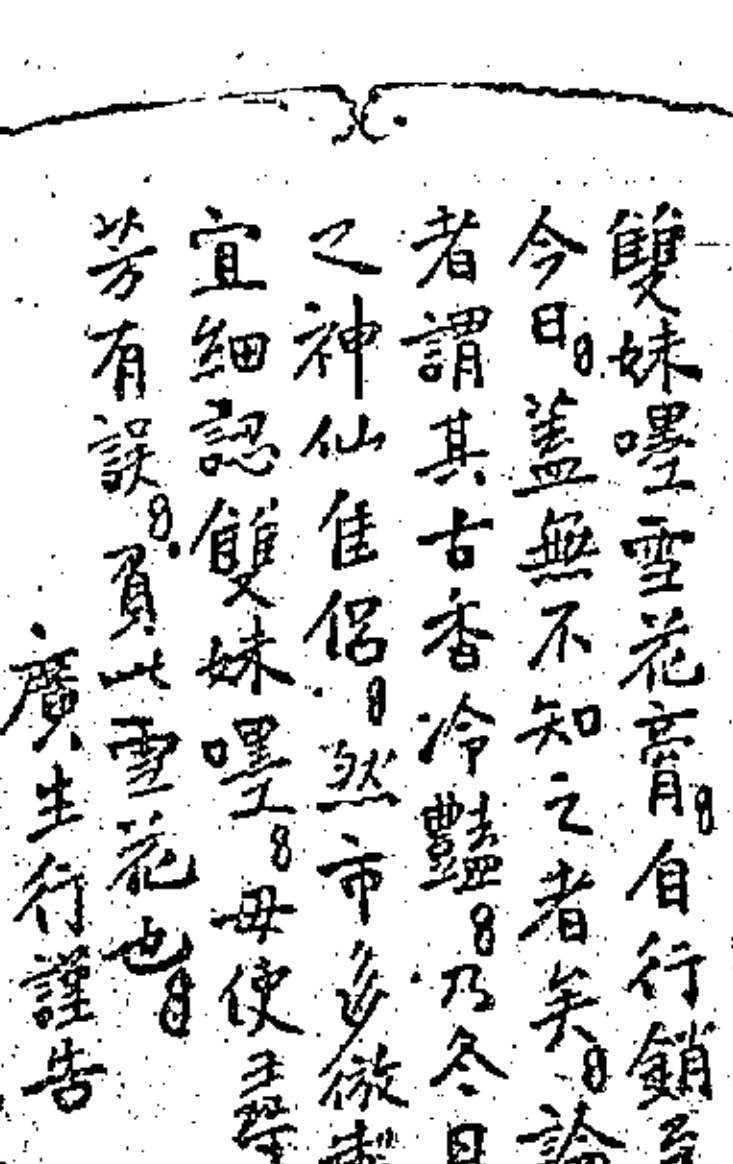 雙妹嚜雪花膏。自行銷至
今日。蓋無不知之者矣。論
者謂其古香冷豔。乃冬日
之神仙隹侶。然市多倣製
宜細認雙妹嚜。毋使
芳有誤。負此雪花也。
廣生行謹告